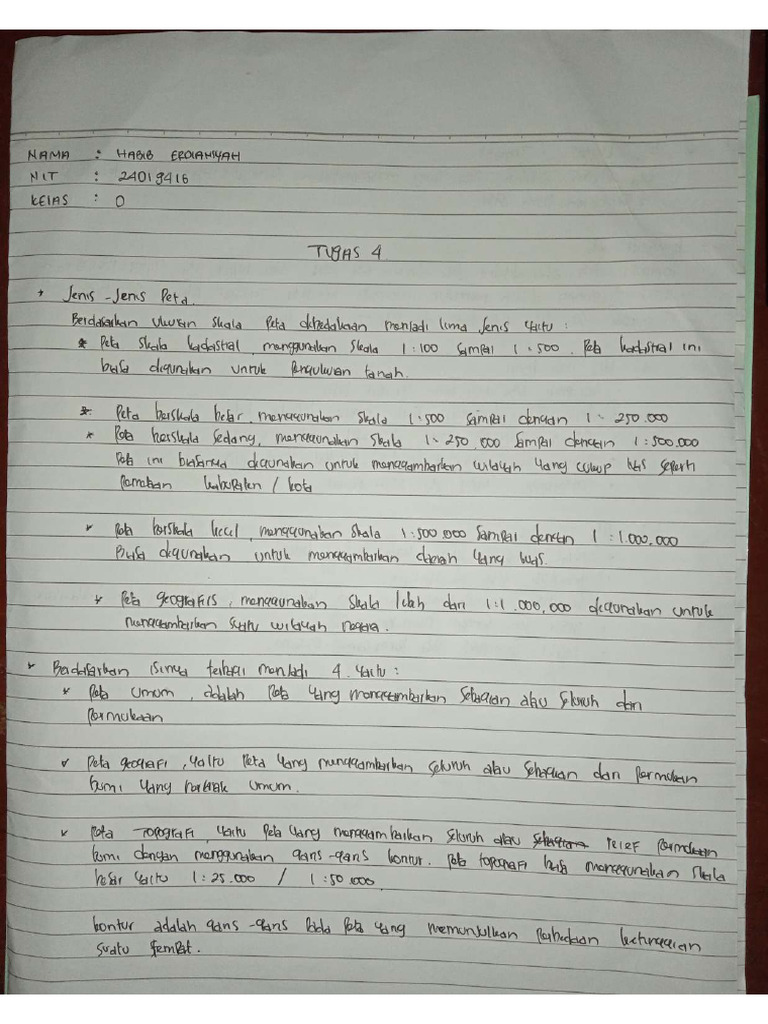 NAMA : HABIB ERDIANSYAH
NIT : 24019416
KELAS : O
TUGAS 4
Jenis - Jenis Peta.
Berdasarkan Ukuran Skala Peta dibedakan menjadi lima Jenis Yaitu :
* Peta Skala kadastral, menggunakan Skala 1:100 Sampai 1:500. Peta kadastral ini
biasa digunakan untuk Pengukuran tanah.
* Peta berskala besar, menggunakan Skala 1:500 Sampai dengan 1: 250.000
* Peta berskala Sedang, menggunakan Skala 1: 250.000 Sampai dengan 1:500.000
Peta ini biasanya digunakan untuk menggambarkan wilayah Yang cukup luas Seperti
kabupaten / kota
Peta berskala kecil, menggunakan Skala 1:500.000 Sampai dengan 1:1.000.000
Biasa digunakan untuk menggambarkan daerah Yang luas.
Peta geografis, menggunakan Skala lebih dari 1:1.000.000 digunakan untuk
menggambarkan Suatu wilayah negara.
Berdasarkan isinya terbagi menjadi 4. Yaitu :
Peta Umum, adalah Peta Yang menggambarkan Sebagian atau Seluruh dari
Permukaan
Peta geografi, Yaitu Peta Yang menggambarkan Seluruh atau Sebagian dari Permukaan
bumi Yang Umum.
Peta TOPOGrafi, Yaitu Peta Yang menggambarkan Seluruh atau relief Permukaan
bumi dengan menggunakan garis-garis kontur. Peta topografi biasa menggunakan Skala
besar Yaitu 1:25.000 / 1:50.000
kontur adalah garis-garis Pada Peta Yang memunculkan Perbedaan ketinggian
Suatu tempat.